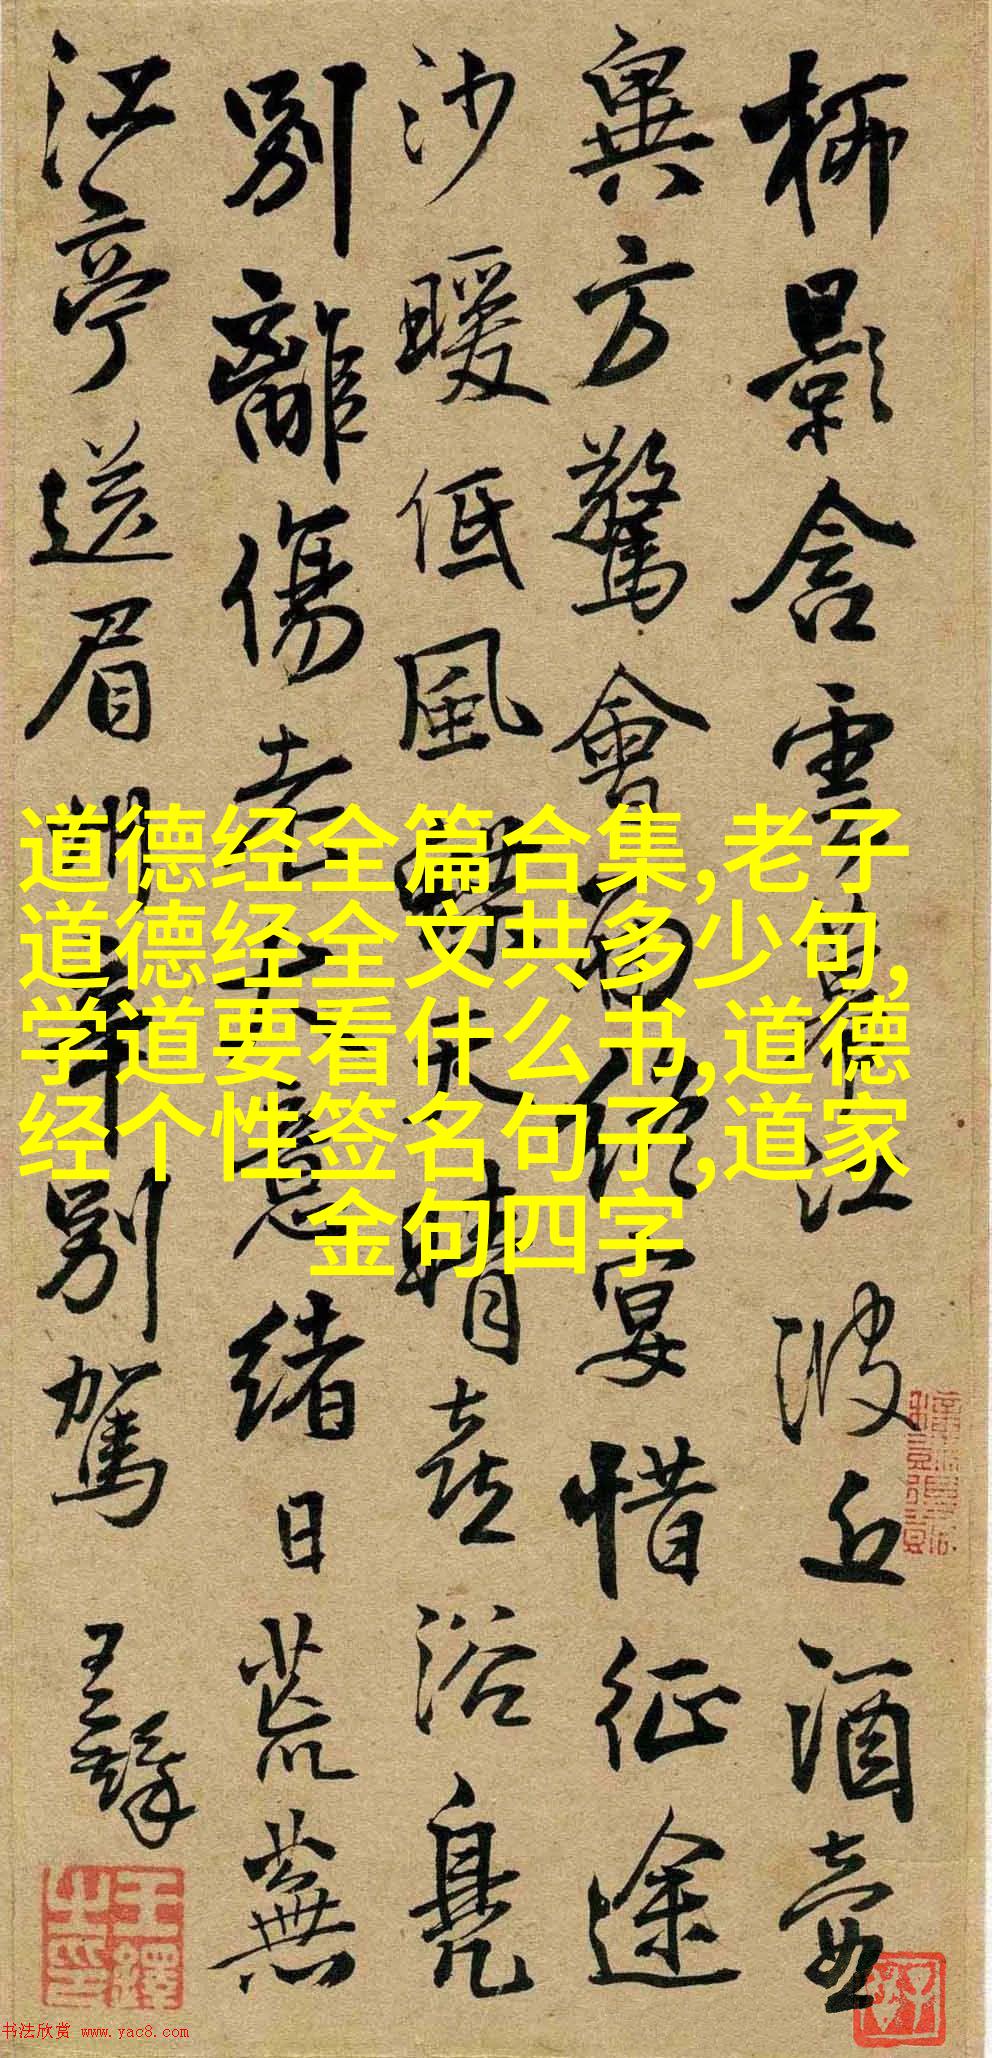 柳影含雲幕江波近酒壺
異方驚會面終宴惜征途
沙暖低風蝶天晴喜浴鳧
別離傷老大意緒日荒蕪
江亭送眉州辛別駕 王鐸
王鐸之印
道德经全篇合集,老子
道德经全文共多少句,
学道要看什么书,道德
经个性签名句子,道家
金句四字
书法欣赏 www.yac8.com